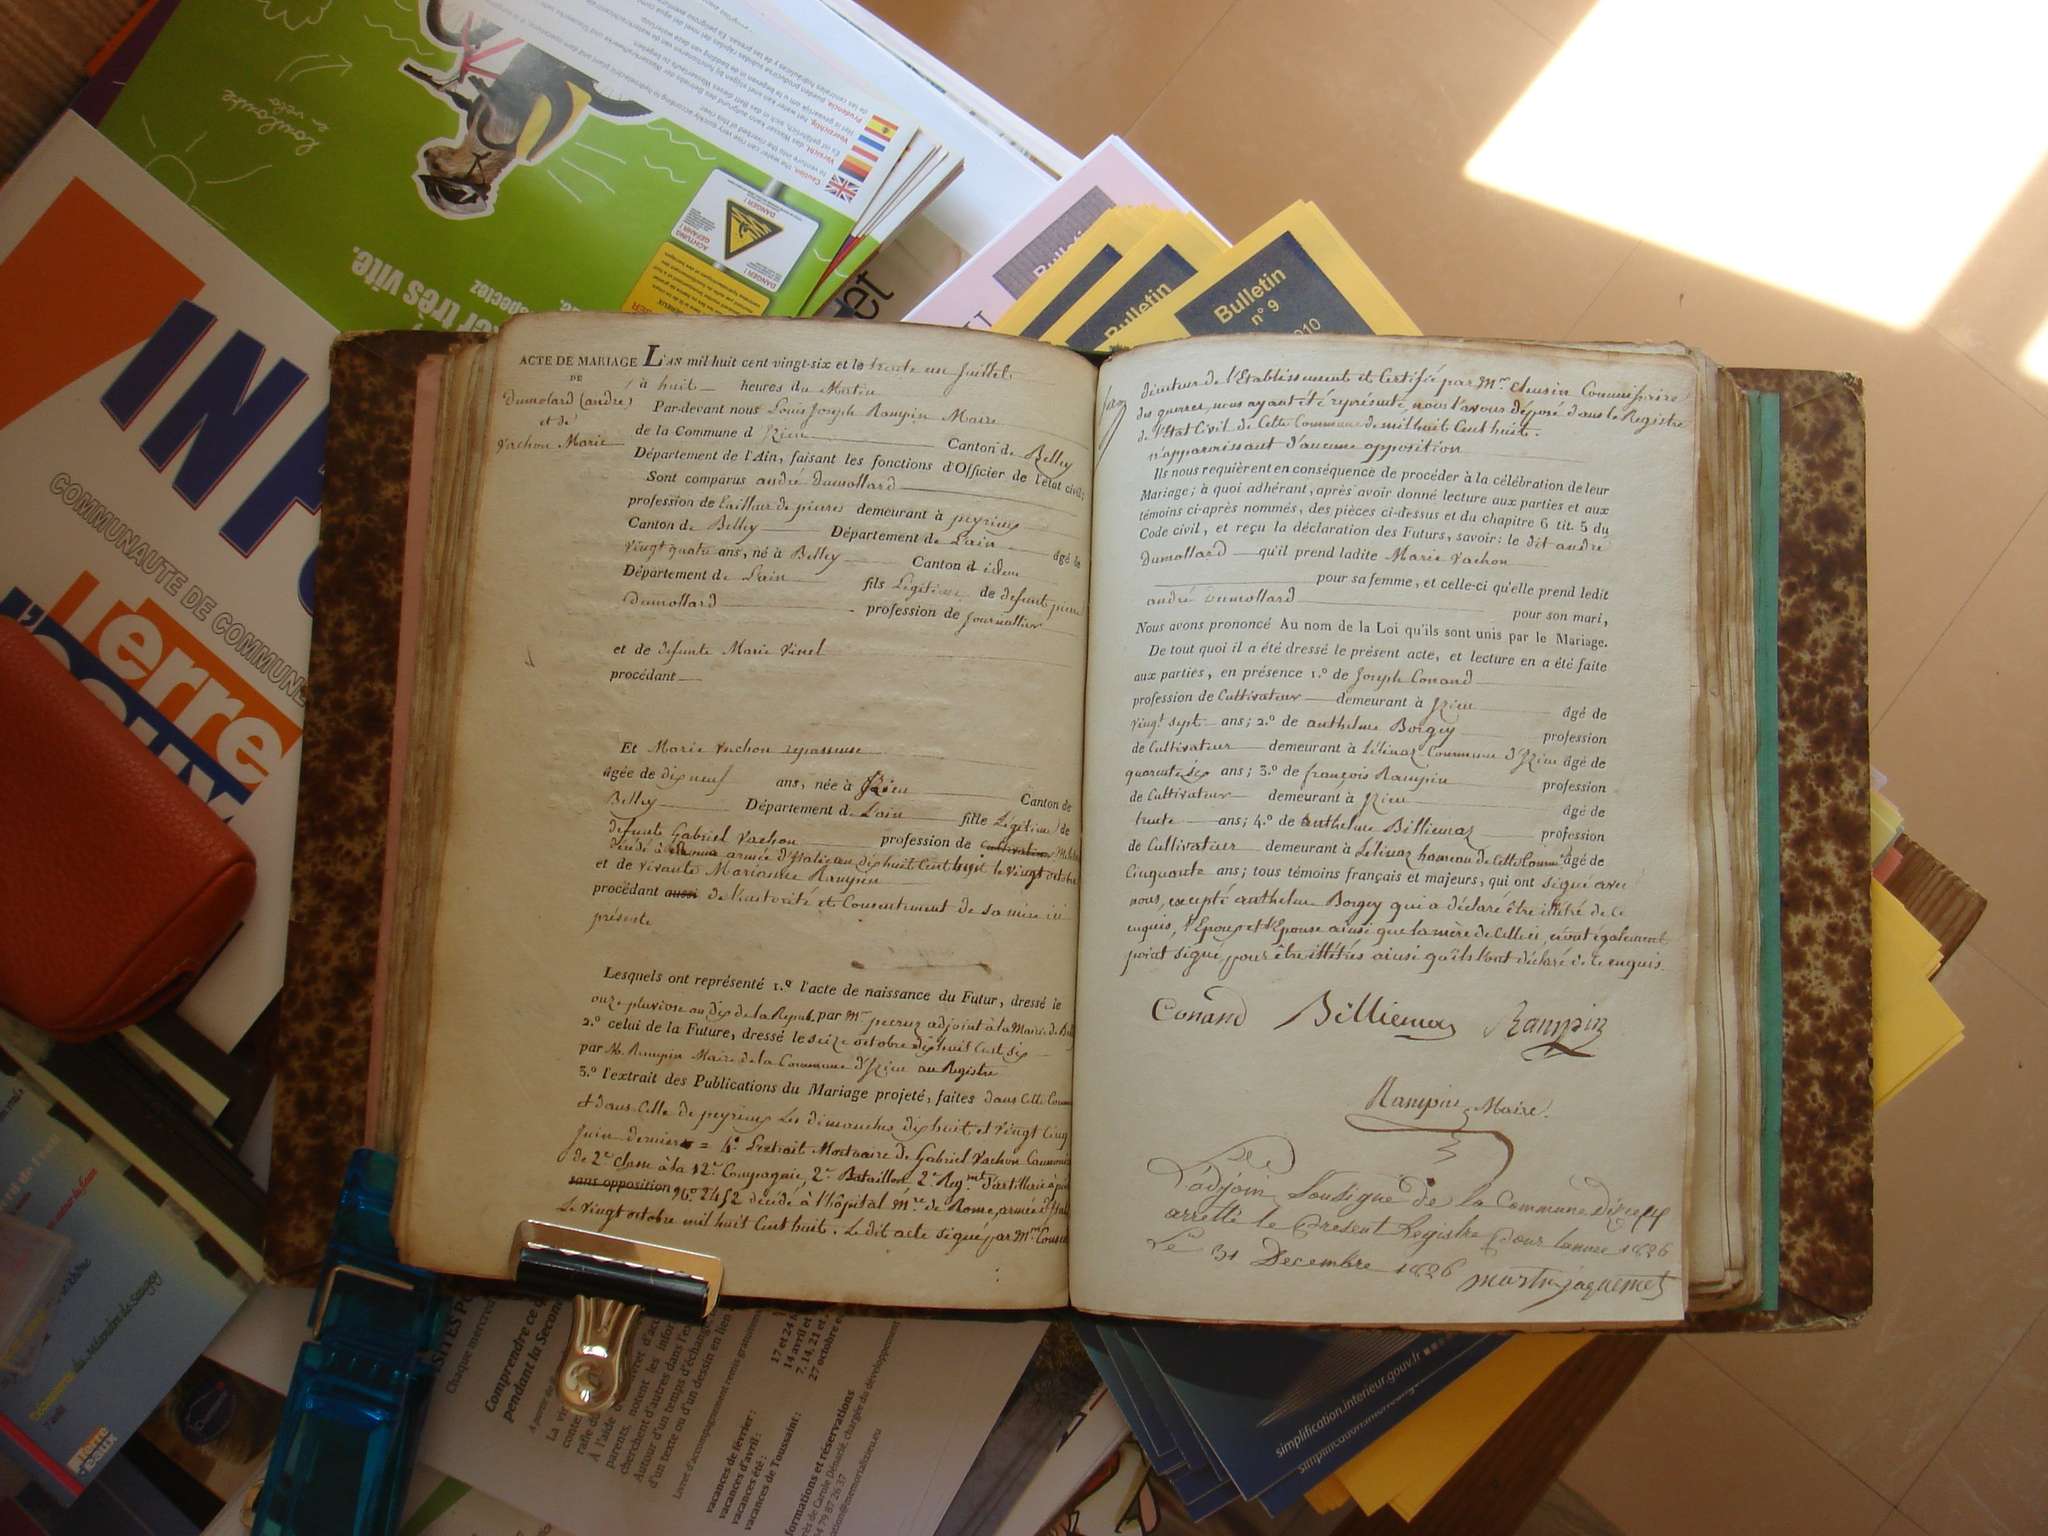 ACTE DE MARIAGE
DE
Dumolard (andré)
et de
Vachon Marie
L'AN mil huit cent vingt-six et le trente un Juillet
à huit heures du Matin
Par-devant nous Louis Joseph Rampin Maire
de la Commune d'Izieu Canton de Belley
Département de l'Ain, faisant les fonctions d'Officier de l'état civil;
Sont comparus andré Dumollard
profession de tailleur de pierres demeurant à peyrieux
Canton de Belley Département de Lain âgé de
vingt quatre ans, né à Belley Canton d idem
Département de Lain fils Légitime de defunt pierre
Dumollard profession de Journallier
et de defunte Marie Vinel
procédant
Et Marie Vachon repasseuse
âgée de dix neuf ans, née à Izieu Canton de
Belley Département de Lain fille Légitime de
defunt Gabriel Vachon profession de cultivateur
décédé à armée d'Italie an dix huit Cent huit le vingt octobre
et de vivante Marianne Rampin
procédant aussi de l'autorité et Consentement de sa mère ici
présente
Lesquels ont représenté 1.º l'acte de naissance du Futur, dressé le
onze pluviose an dix de la Repub. par Mr pecruz adjoint à la Mairie de Belley
2.º celui de la Future, dressé le seize octobre dix huit Cent six
par M. Rampin Maire de la Commune d'Izieu au Registre
3.º l'extrait des Publications du Mariage projeté, faites dans Cette Commune
et dans Celle de peyrieux Les dimanches dix huit et vingt Cinq
Juin dernier = 4º L'extrait Mortuaire de Gabriel Vachon Canonnier
de 2e Classe à la 12e Compagnie, 2e Bataillon 2e Regmt d'artillerie à pied
sans opposition nº 2452 décédé à l'hôpital Mre de Rome, armée d'Italie
Le vingt octobre mil huit Cent huit. Le dit acte signé par Mr
directeur de l'Etablissement et Certifié par Mr Clausin Commissaire
des guerres, nous ayant été représenté, nous l'avons déposé dans le Registre
de l'Etat Civil de Cette Commune de mil huit Cent huit.
n'apparoissant d'aucune opposition
Ils nous requièrent en conséquence de procéder à la célébration de leur
Mariage; à quoi adhérant, après avoir donné lecture aux parties et aux
témoins ci-après nommés, des pièces ci-dessus et du chapitre 6 tit. 5 du
Code civil, et reçu la déclaration des Futurs, savoir: le dit andré
Dumollard qu'il prend ladite Marie Vachon
pour sa femme, et celle-ci qu'elle prend ledit
andré Dumollard pour son mari,
Nous avons prononcé Au nom de la Loi qu'ils sont unis par le Mariage.
De tout quoi il a été dressé le présent acte, et lecture en a été faite
aux parties, en présence 1.º de Joseph Conand
profession de Cultivateur demeurant à Izieu âgé de
vingt sept ans; 2.º de anthelme Borgey profession
de Cultivateur demeurant à Lelinaz Commune d'Izieu âgé de
quarante six ans; 3.º de françois Rampin profession
de Cultivateur demeurant à Izieu âgé de
trente ans; 4.º de anthelme Billiemaz profession
de Cultivateur demeurant à Lelinaz hameau de Cette Comme âgé de
Cinquante ans; tous témoins français et majeurs, qui ont signé avec
nous, excepté anthelme Borgey qui a déclaré être illétré de ce
enquis, l'Epoux et l'Epouse ainsi que la mère de Celle ci, n'ont également
point signé pour être illétrés ainsi qu'ils l'ont déclaré de ce enquis.
Conand Billiemaz Rampin
Rampin Maire.
L'adjoin Sousigné de la Commune dizieux
arretté le present Registre pour lannee 1826
Le 31 Decembre 1826
Bulletin
Bulletin
Bulletin
n° 9
INFO
COMMUNAUTE DE COMMUNES
Terre
très vite.
DANGER !
ACHTUNG
GEFAHR !
toulouse
en vélo
Comprendre ce
pendant la Second
vacances de février :
vacances d'avril :
vacances été :
vacances de Toussaint :
17 et 24
14 avril et
7, 14, 21 et
27 octobre
formations et réservations
simplification.interieur.gouv.fr